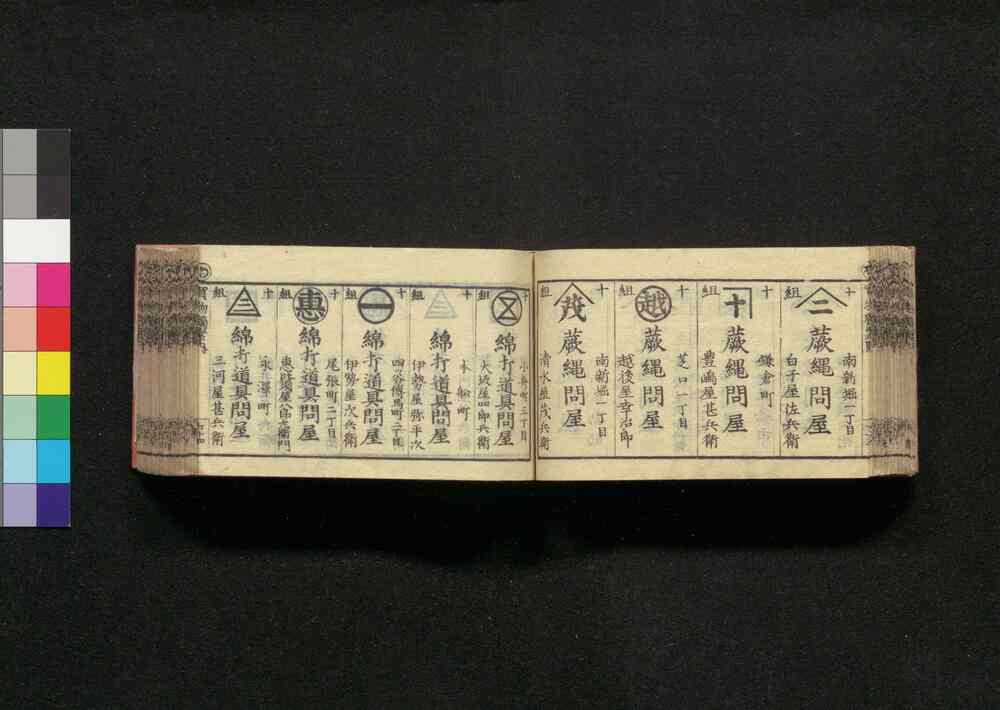 十組
二
南新堀一丁目
蕨縄問屋
白子屋佐兵衛
十組
十
鎌倉町
蕨縄問屋
豊嶋屋甚兵衛
十組
越
芝口一丁目
蕨縄問屋
越後屋幸治郎
十組
茂
南新堀一丁目
蕨縄問屋
清水屋茂兵衛
小舟町三丁目
綿打道具問屋
大坂屋四郎兵衛
十組
三
本船町
綿打道具問屋
伊勢屋弥平次
十組
一
四谷傳馬町二丁目
綿打道具問屋
伊勢屋次兵衛
十組
惠
尾張町二丁目
綿打道具問屋
十組
三
綿打道具問屋
三河屋甚兵衛